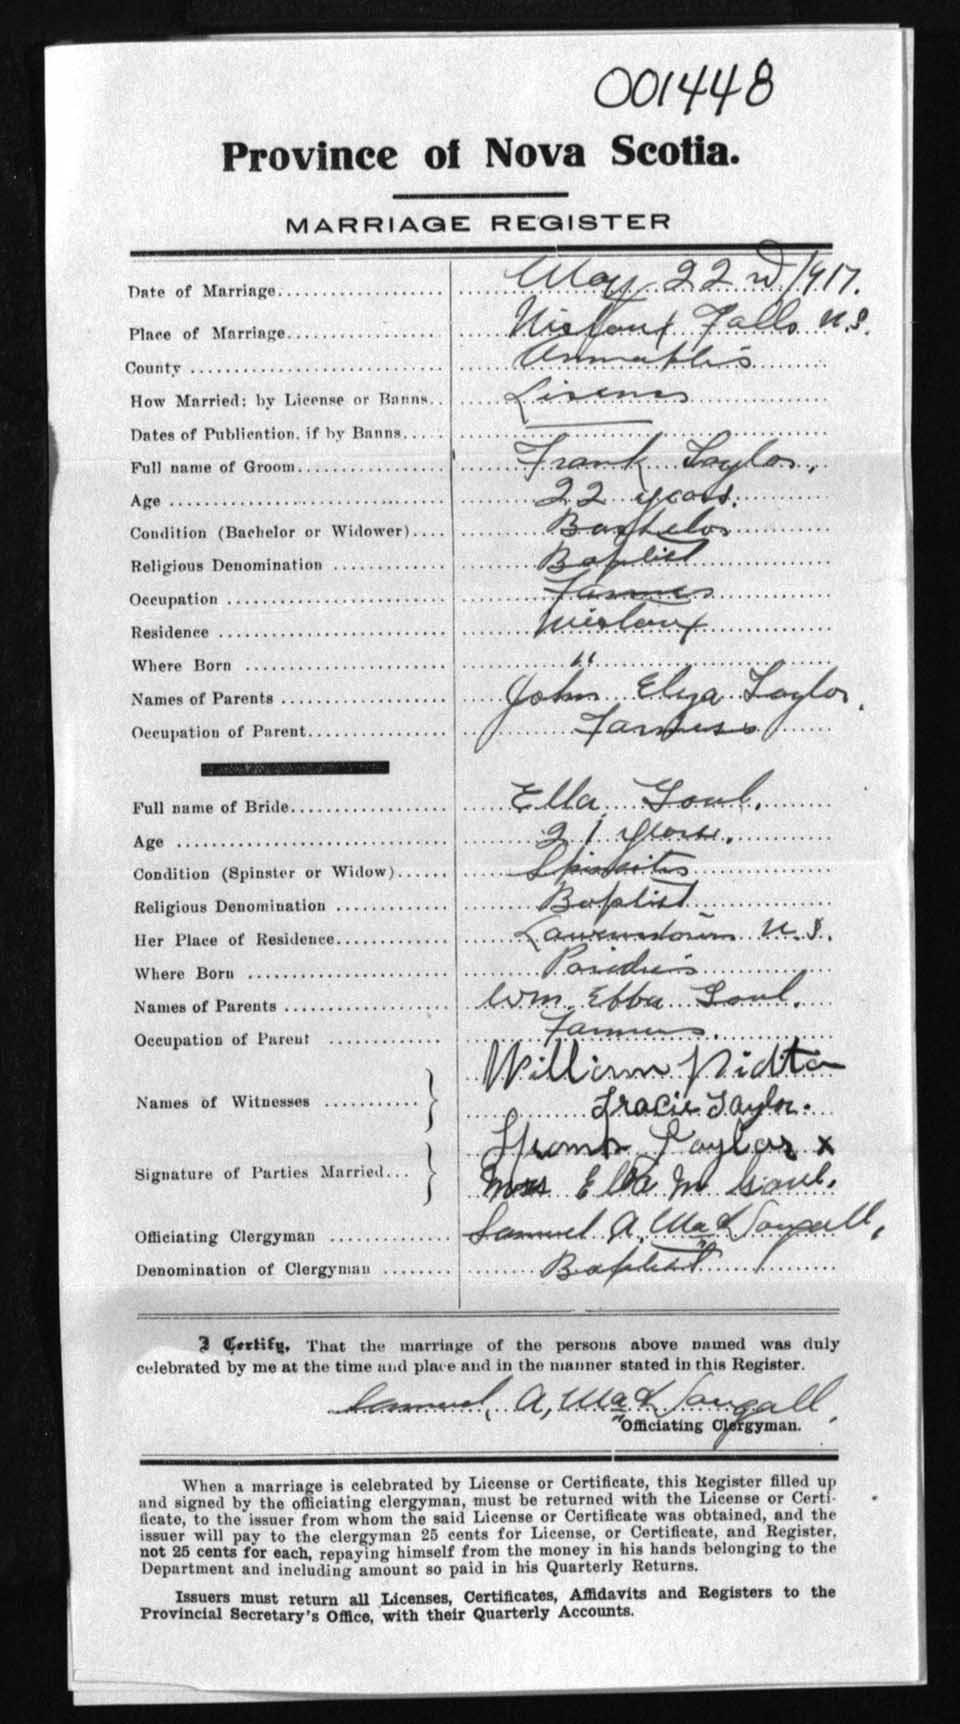 001448
Province of Nova Scotia.
MARRIAGE REGISTER
Date of Marriage May 22nd 1917.
Place of Marriage Nictaux Falls N.S.
County Annapolis
How Married; by License or Banns License
Dates of Publication, if by Banns
Full name of Groom Frank Taylor.
Age 22 years.
Condition (Bachelor or Widower) Bachelor
Religious Denomination Baptist
Occupation Farmer
Residence Nictaux
Where Born "
Names of Parents John Eliza Taylor.
Occupation of Parent Farmer
Full name of Bride Ella Goul.
Age 21 years.
Condition (Spinster or Widow) Spinster
Religious Denomination Baptist
Her Place of Residence Lawrencetown N.S.
Where Born Paridies
Names of Parents Wm Ebba Goul.
Occupation of Parent Farmer.
Names of Witnesses William
Tracie Taylor.
Signature of Parties Married Taylor x
Mrs Ella M Goul.
Officiating Clergyman Samuel A. MacDougall,
Denomination of Clergyman Baptist
I Certify, That the marriage of the persons above named was duly
celebrated by me at the time and place and in the manner stated in this Register.
Samuel, A, MacDougall,
Officiating Clergyman.
When a marriage is celebrated by License or Certificate, this Register filled up
and signed by the officiating clergyman, must be returned with the License or Certi-
ficate, to the issuer from whom the said License or Certificate was obtained, and the
issuer will pay to the clergyman 25 cents for License, or Certificate, and Register,
not 25 cents for each, repaying himself from the money in his hands belonging to the
Department and including amount so paid in his Quarterly Returns.
Issuers must return all Licenses, Certificates, Affidavits and Registers to the
Provincial Secretary's Office, with their Quarterly Accounts.